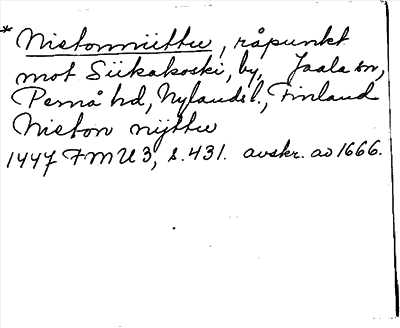 * Nietonniittu, råpunkt
mot Siikakoski, by, Jaala sn,
Pernå hd, Nylands l., Finland
Nieton nijttu
1447 FMU 3, s. 431. avskr. av 1666.